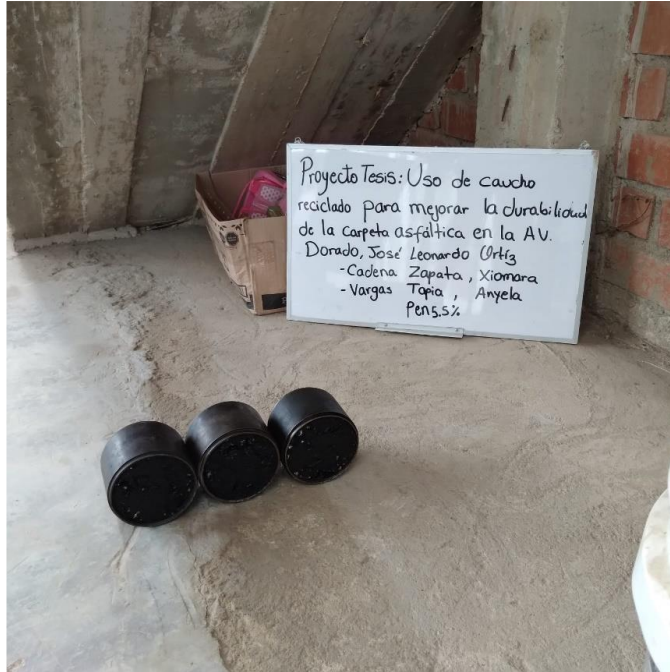 Proyecto Tesis: Uso de caucho
reciclado para mejorar la durabilidad
de la carpeta asfáltica en la AV.
Dorado, José Leonardo Ortíz
-Cadena Zapata, Xiomara
-Vargas Tapia, Anyela
Pen 5.5%